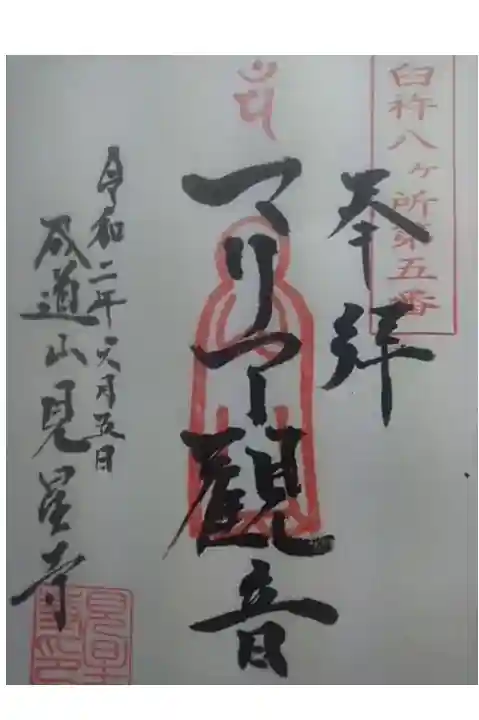 臼杵八ヶ所第五番
奉拝
マリア観音
令和二年六月五日
成道山見星寺
見星寺印